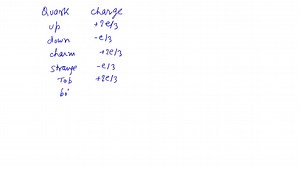 Quark charge
up +2e/3
down -e/3
charm +2e/3
strange -e/3
Top +2e/3
bo